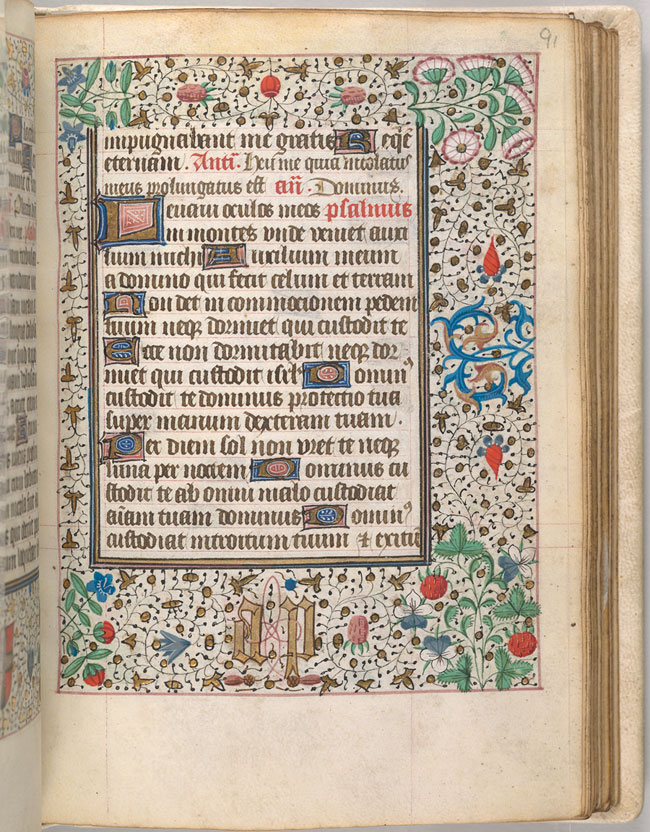 91
impugnabant me gratis Reqȝe
eternam. Antͥ. Heu me quia incolatus
meus prolungatus est añ. Dominus.
Levavi oculos meos psalmus
in montes unde veniet auxi
lium michi Auxilium meum
a domino qui fecit celum et terram
Non det in commocionem pedem
tuum neqȝ dormiet qui custodit te
Ecce non dormitabit neqȝ dor
miet qui custodit isrl Dominꝰ
custodit te dominus protectio tua
super manum dexteram tuam.
Per diem sol non uret te neqȝ
luna per noctem Dominus cu
stodit te ab omni malo custodiat
aĩam tuam dominus Dominꝰ
custodiat introitum tuum ⁊ exitũ
a p